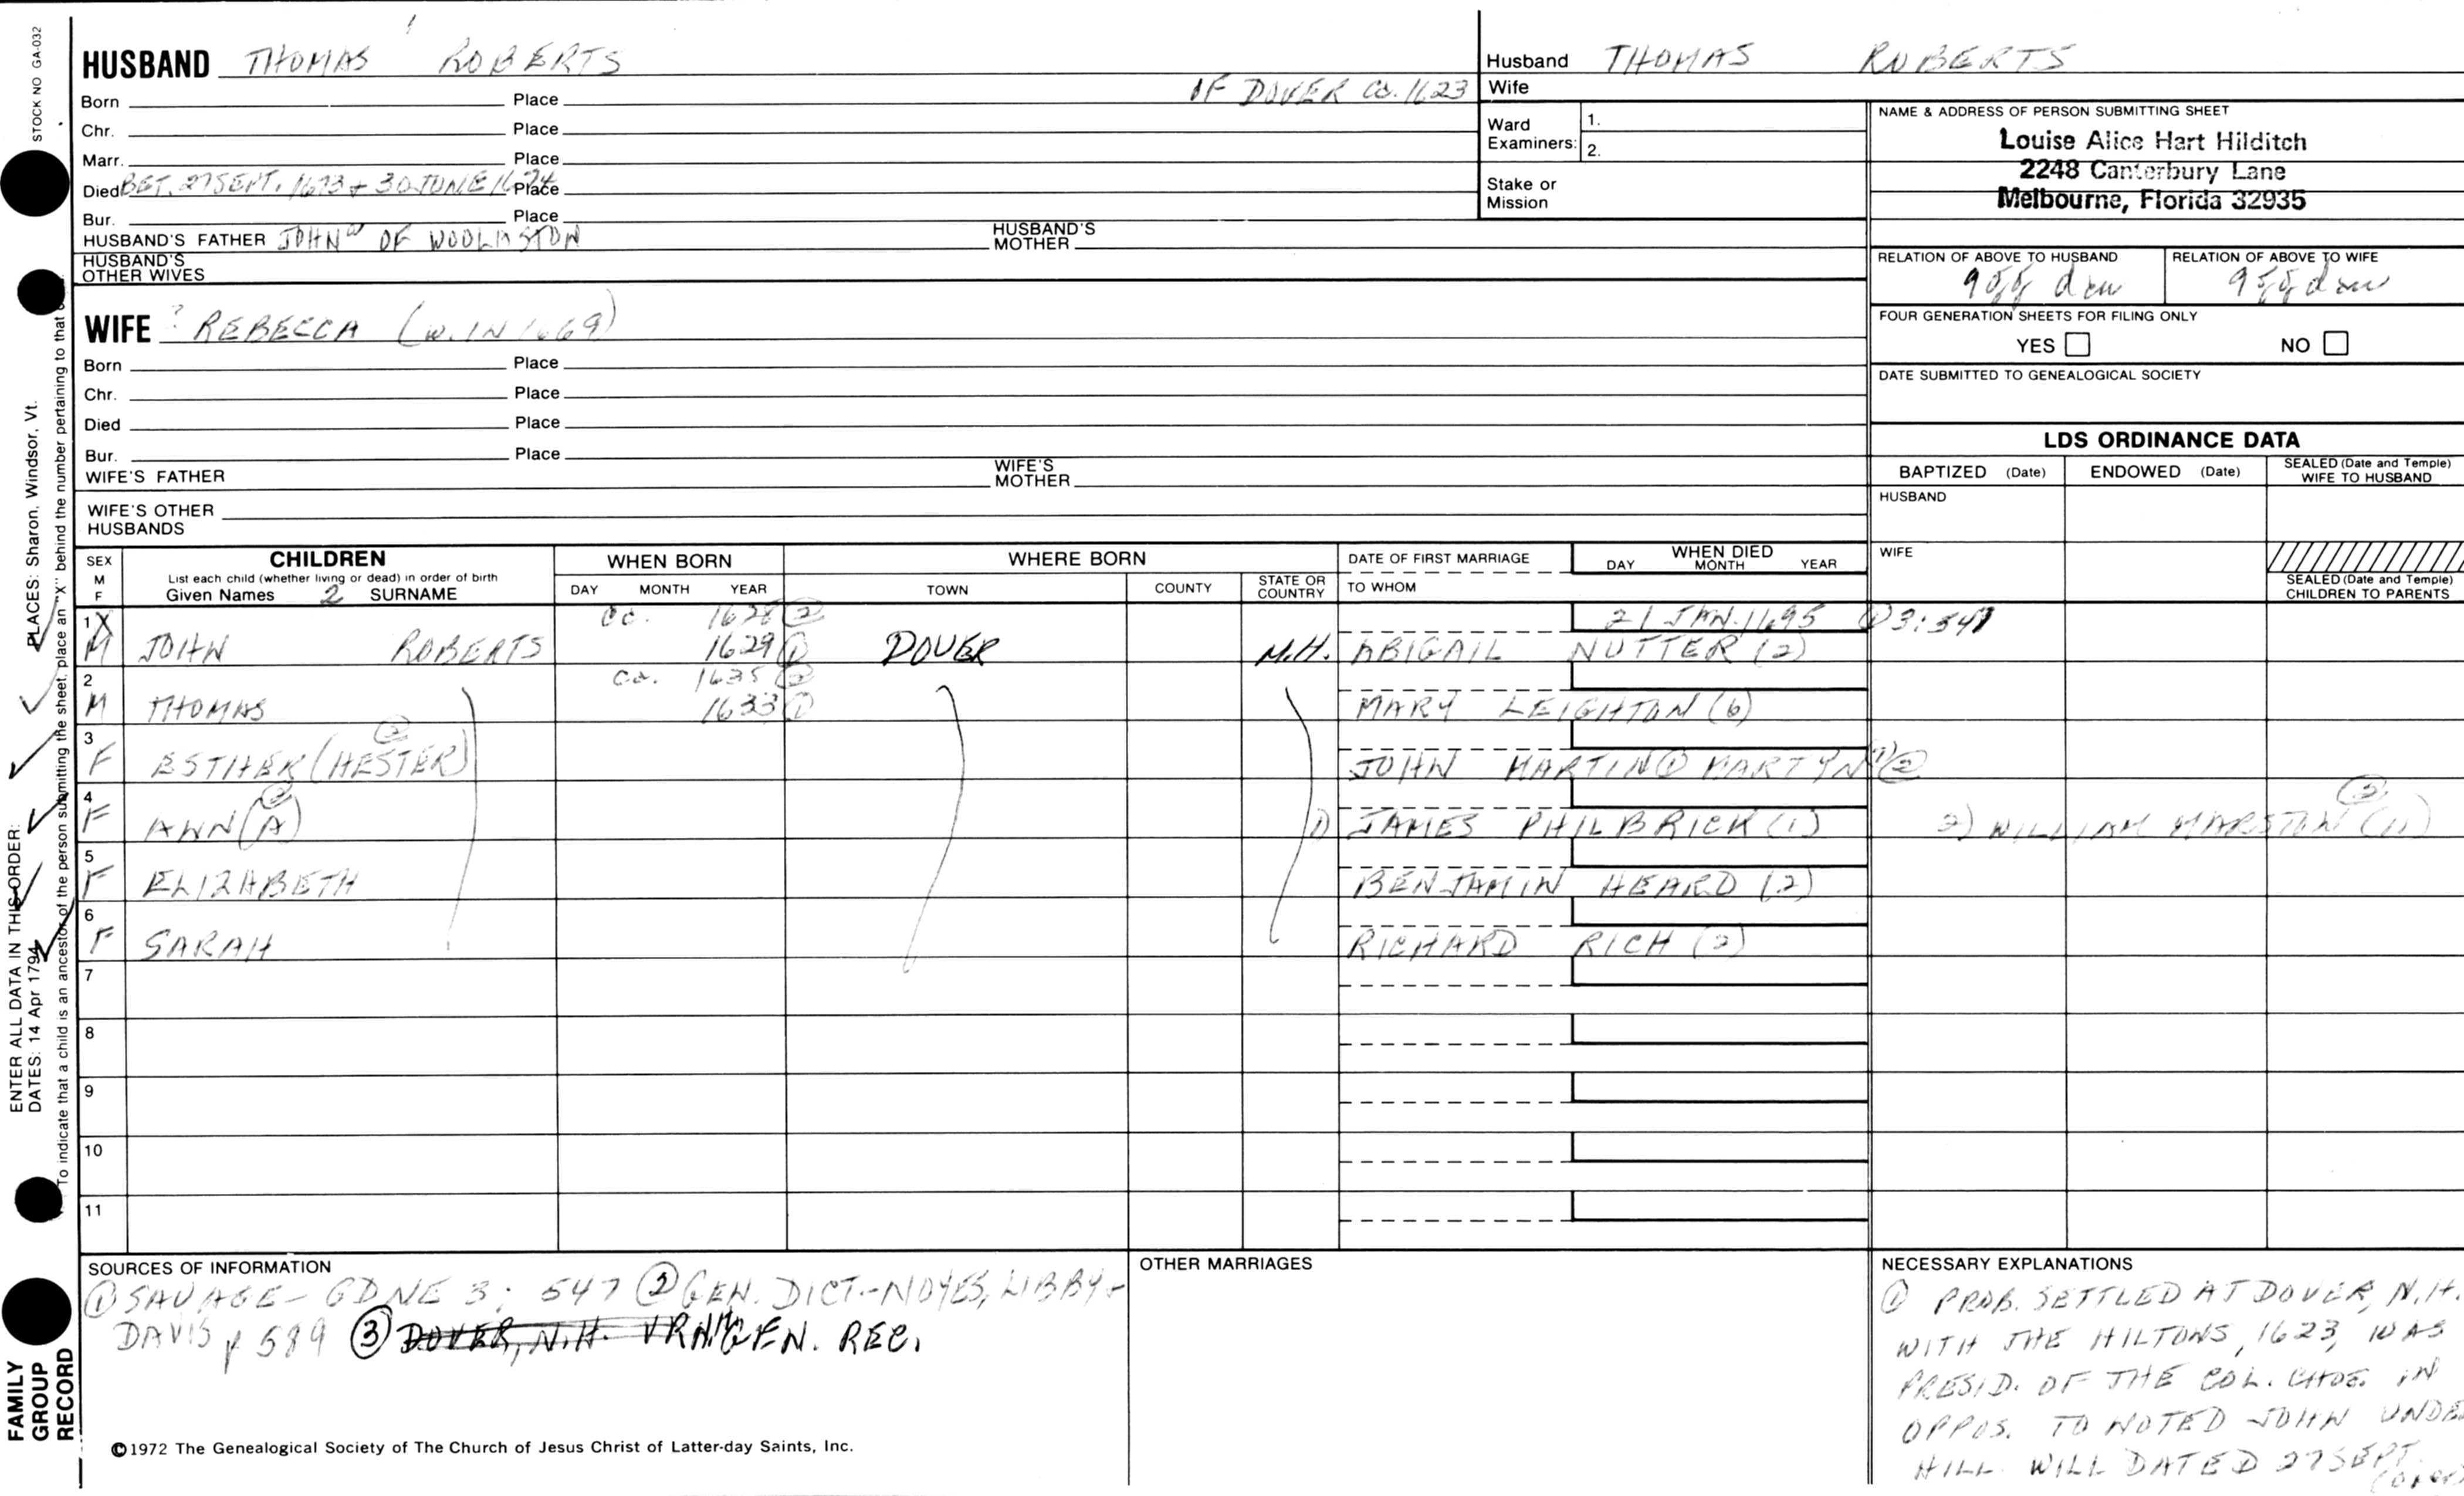 STOCK NO GA-032
HUSBAND THOMAS 1 ROBERTS
OF DOVER Ca. 1623
Born Place
Chr. Place
Marr. Place
Died BET. 27 SEPT. 1673 + 30 JUNE 1674 Place
Bur. Place
HUSBAND'S FATHER JOHN OF WOOLASTON HUSBAND'S MOTHER
HUSBAND'S OTHER WIVES
WIFE ? REBECCA (W. IN 1669)
Born Place
Chr. Place
Died Place
Bur. Place
WIFE'S FATHER WIFE'S MOTHER
WIFE'S OTHER HUSBANDS
Husband THOMAS ROBERTS
Wife
Ward Examiners: 1.
2.
Stake or Mission
NAME & ADDRESS OF PERSON SUBMITTING SHEET
Louise Alice Hart Hilditch
2248 Canterbury Lane
Melbourne, Florida 32935
RELATION OF ABOVE TO HUSBAND RELATION OF ABOVE TO WIFE
FOUR GENERATION SHEETS FOR FILING ONLY
YES NO
DATE SUBMITTED TO GENEALOGICAL SOCIETY
LDS ORDINANCE DATA
BAPTIZED (Date) ENDOWED (Date) SEALED (Date and Temple) WIFE TO HUSBAND
HUSBAND
WIFE
SEALED (Date and Temple) CHILDREN TO PARENTS
SEX M F
CHILDREN
List each child (whether living or dead) in order of birth
Given Names 2 SURNAME
WHEN BORN
DAY MONTH YEAR
WHERE BORN
TOWN COUNTY STATE OR COUNTRY
DATE OF FIRST MARRIAGE
TO WHOM
WHEN DIED
DAY MONTH YEAR
1 X ca. 1628 ② 21 JAN. 1695 ① 3:547
M JOHN ROBERTS 1629 ① DOVER N.H. ABIGAIL NUTTER (2)
2 ca. 1635 ②
M THOMAS 1633 ① MARY LEIGHTON (6)
3 ②
F ESTHER (HESTER) JOHN MARTIN ① MARTYN (1) ②
4 ② ②
F ANN (A) 1) JAMES PHILBRICK (1) 2) WILLIAM MARSTON (11)
5
F ELIZABETH BENJAMIN HEARD (2)
6
F SARAH RICHARD RICH (2)
7
8
9
10
11
SOURCES OF INFORMATION
① SAVAGE - GDNE 3: 547 ② GEN. DICT. - NOYES, LIBBY +
DAVIS p 589 ③ DOVER, N.H. GEN. REC.
OTHER MARRIAGES
NECESSARY EXPLANATIONS
① PROB. SETTLED AT DOVER, N.H.
WITH THE HILTONS, 1623, WAS
PRESID. OF THE COL. CHOS. IN
OPPOS. TO NOTED JOHN UNDE
HILL. WILL DATED 27 SEPT.
(over)
©1972 The Genealogical Society of The Church of Jesus Christ of Latter-day Saints, Inc.
FAMILY
GROUP
RECORD
ENTER ALL DATA IN THIS ORDER:
DATES: 14 Apr 1794
PLACES: Sharon, Windsor, Vt.
To indicate that a child is an ancestor of the person submitting the sheet, place an "X" behind the number pertaining to that